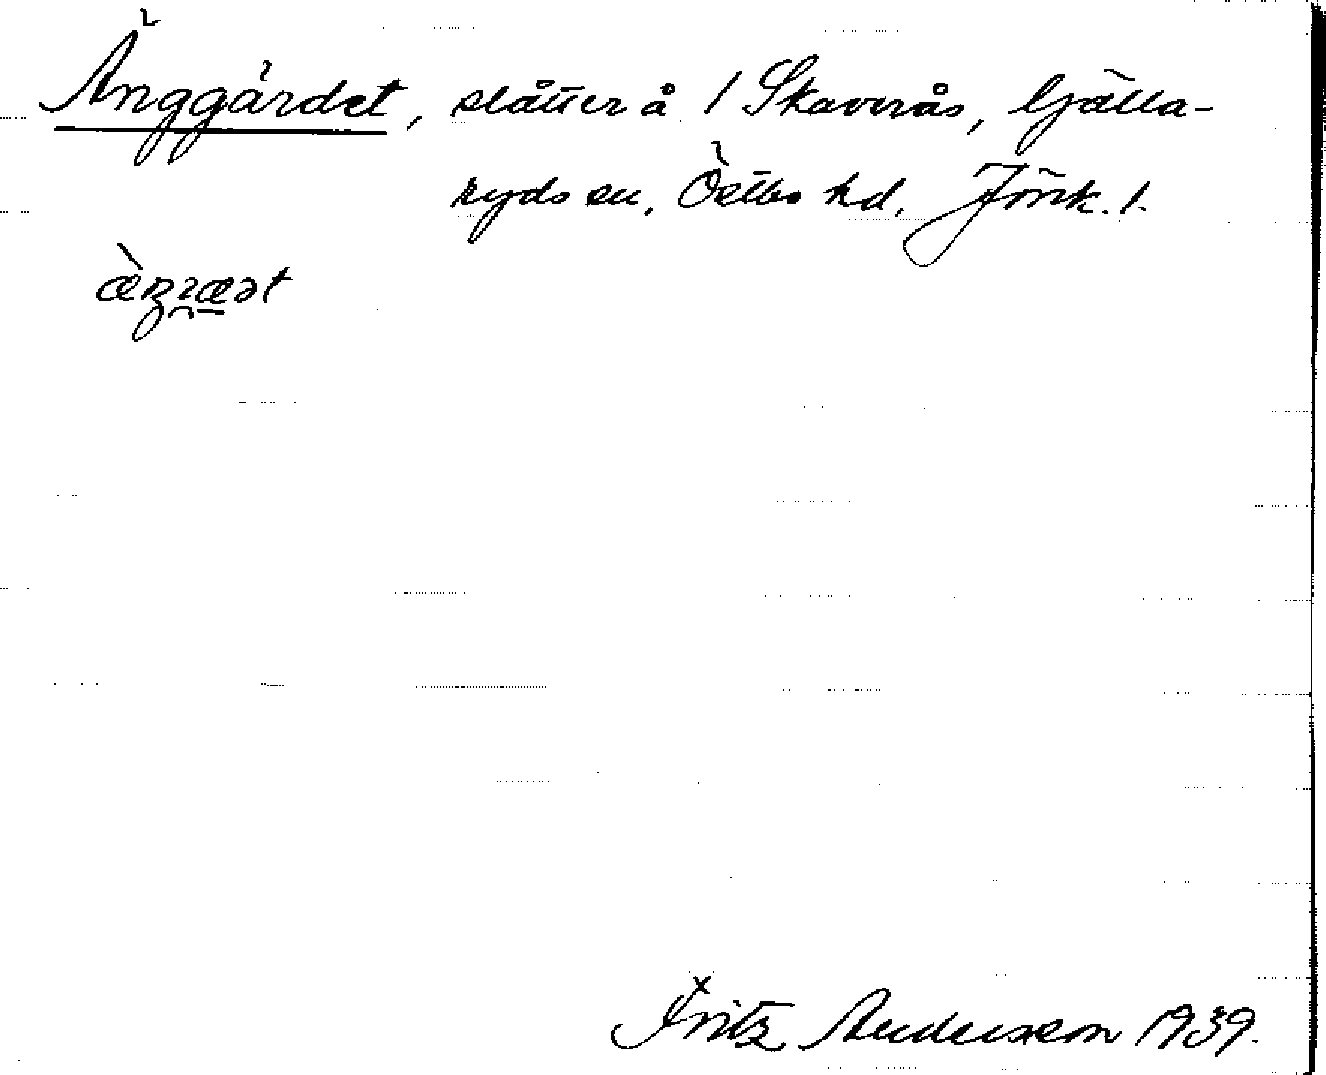 Änggärdet, slåtter å 1 Skaverås, Gjälla-
ryds sn, Östbo hd, Jönk. l.
Fritz Andersson 1939.